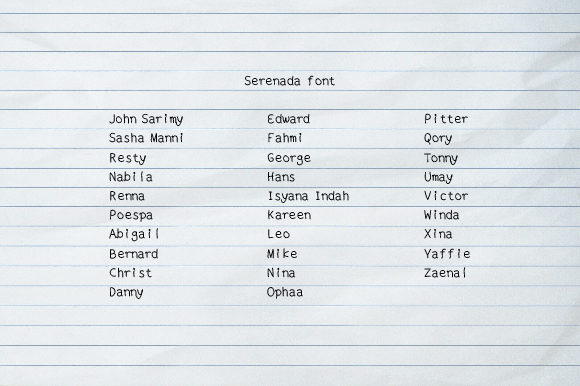 Serenada font
John Sarimy
Sasha Manni
Resty
Nabila
Renna
Poespa
Abigail
Bernard
Christ
Danny
Edward
Fahmi
George
Hans
Isyana Indah
Kareen
Leo
Mike
Nina
Ophaa
Pitter
Qory
Tonny
Umay
Victor
Winda
Xina
Yaffie
Zaenal